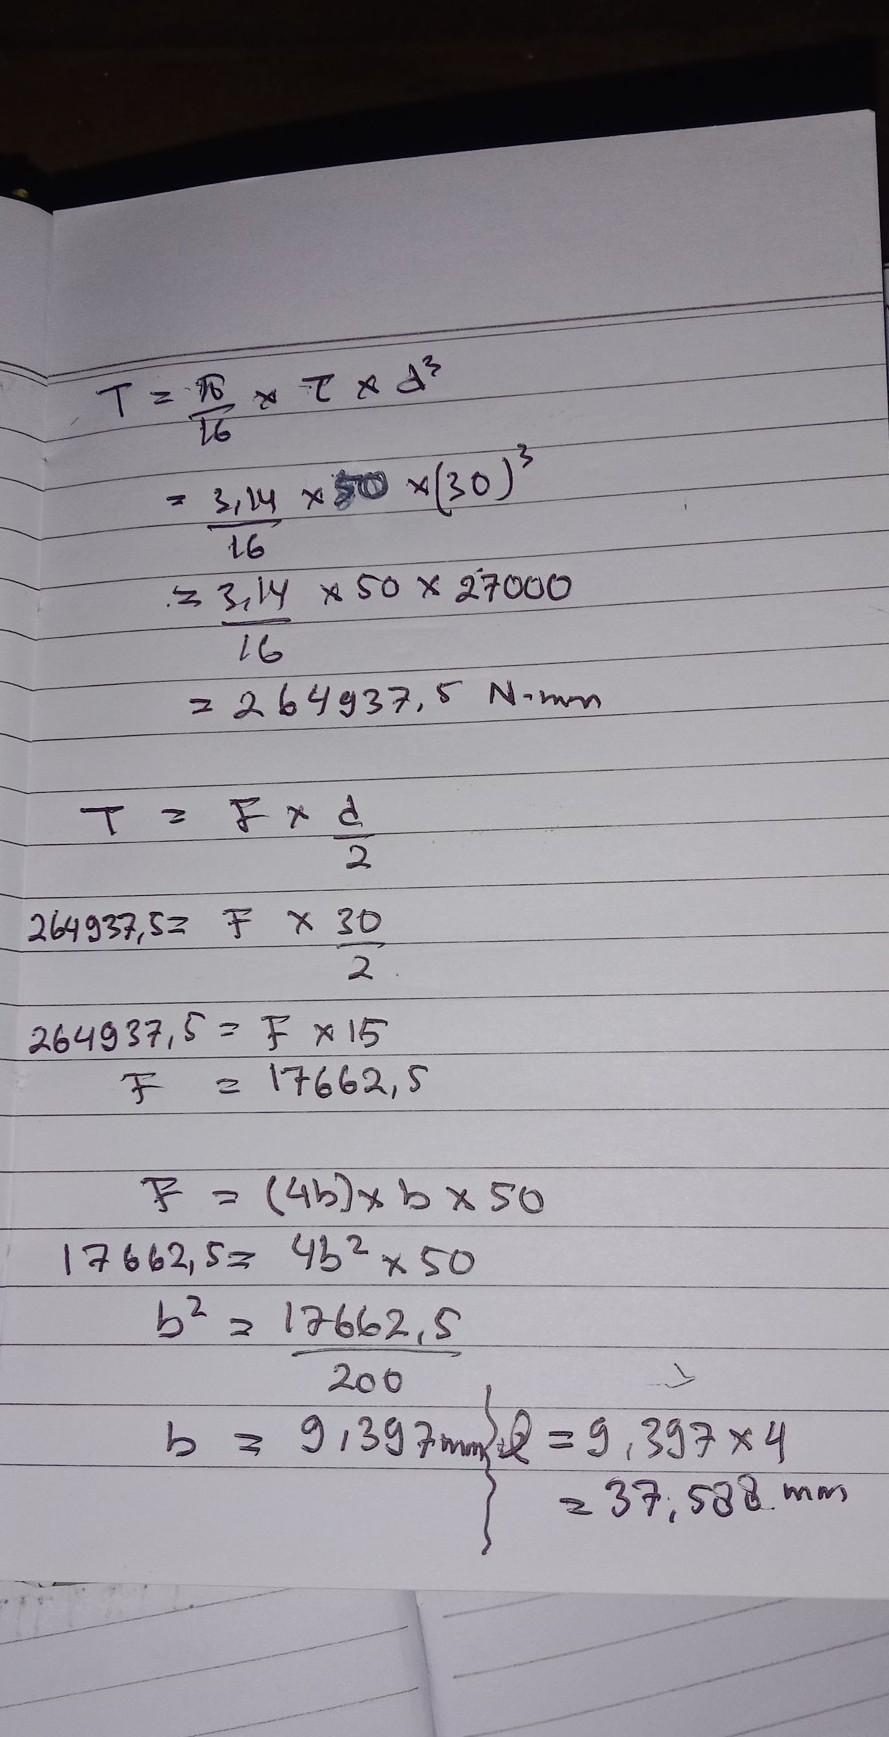 T = π/16 × τ × d³
= 3,14/16 × 50 × (30)³
= 3,14/16 × 50 × 27000
= 264937,5 N-mm
T = F × d/2
264937,5 = F × 30/2
264937,5 = F × 15
F = 17662,5
F = (4b) × b × 50
17662,5 = 4b² × 50
b² = 17662,5/200
b = 9,397 mm } l = 9,397 × 4
= 37,588 mm